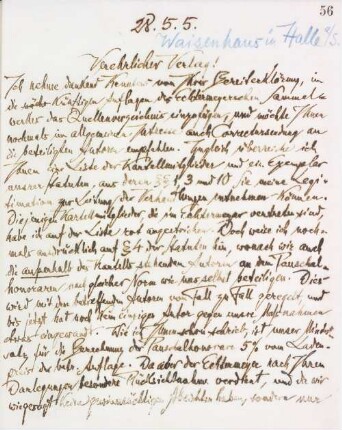 56
28. 5. 5.
Waisenhaus in Halle a/S.
Verehrlicher Verlag!
Ich nehme dankend Kenntnis von Ihrer Bereiterklärung, in
die nächstkünftigen Auflagen des Echtermeyerschen Sammel-
werkes das Quellenverzeichnis einzufügen, und möchte Ihnen
nochmals im allgemeinen Interesse auch Correctursendung an
die beteiligten Autoren empfehlen. Zugleich überreiche ich
Ihnen die Liste der Kartellmitglieder und ein Exemplar
unsrer Statuten, aus deren §§ 1, 3 und 10 Sie meine Legi-
timation zur Leitung der Verhandlungen entnehmen können.
Diejenigen Kartellmitglieder, die im Echtermeyer vertreten sind,
habe ich auf der Liste rot angestrichen. Doch weise ich noch-
mals ausdrücklich auf § der Statuten hin, wonach wir auch
die außerhalb des Kartells stehenden Autoren an den Pauschal-
honoraren nach gleicher Norm wie uns selbst beteiligen. Dies
wird mit den betreffenden Autoren von Fall zu Fall geregelt, und
bis jetzt hat noch kein einziger Autor gegen unsre Maßnahmen
etwas eingewandt. Wie ich Ihnen schon schrieb, ist unser Mindest-
satz für die Berechnung der Pauschalhonorare 5% vom Laden-
preis der Auflage. Da aber der Echtermeyer nach Ihren
Darlegungen besondre Rücksichtnahme verdient, und da wir
wiegesagt keine eigennützigen Absichten haben, sondern nur